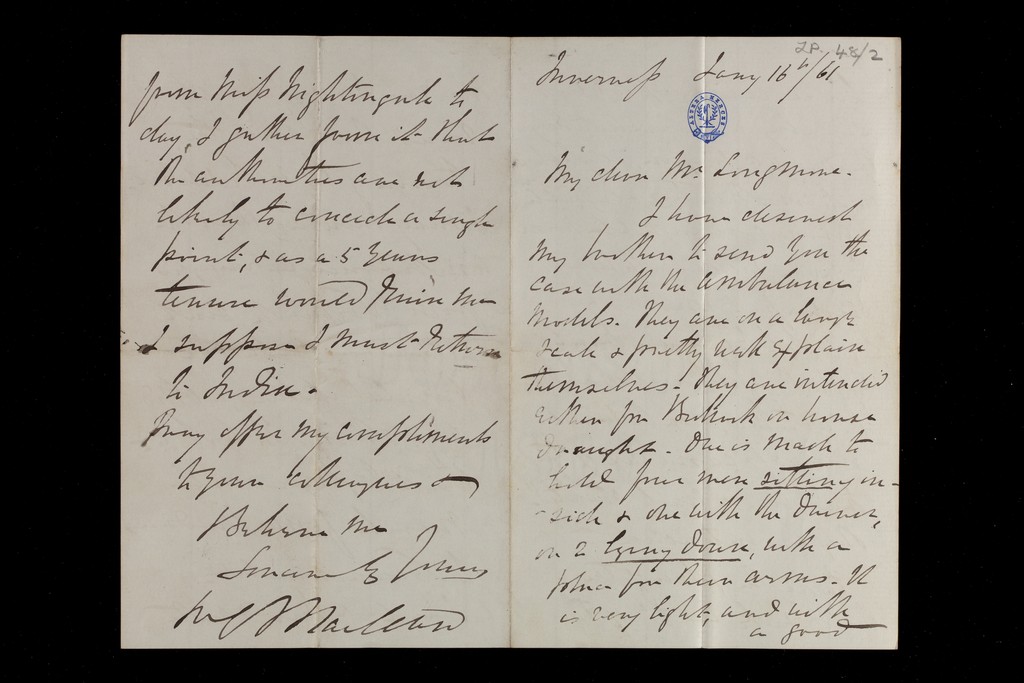 LP. 48/2
Inverness Jany 16th/61
My dear Mr. Longmore.
I have desired
my brother to send you the
case with the ambulance
models. They are on a large
scale & pretty well explain
themselves - They are intended
either for Bullock or horse
draught - One is made to
hold four men sitting in-
-side & one with the driver,
or 2 lying down, with a
place for their arms. It
is very light, and with
a good
from Miss Nightingale to
day, I gather from it that
the authorities are not
likely to concede a single
point, & as a 5 years
tenure would ruin me
I suppose I must return
to India.
Pray offer my compliments
to your colleagues &
Believe me
Sincerely Yours
W C Maclean